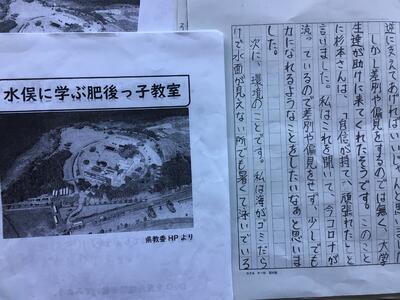 水俣に学ぶ肥後っ子教室
県教委HPより
逆に支えてあげればいいじゃんと
しかし差別や偏見をするのでは無く、大学
生達が助けに来てくれたそうです。このこと
に杉本さんは、「自信が持て、頑張れた」と
言いました。私はこれを聞いて、今コロナが
流っているので差別や偏見をせず、少しでも
力になれるようなことをしたいなあと思いま
した。
次に、環境のことです。私は海がゴミだら
けで水面が見えない所でも暑くて泳いでいる